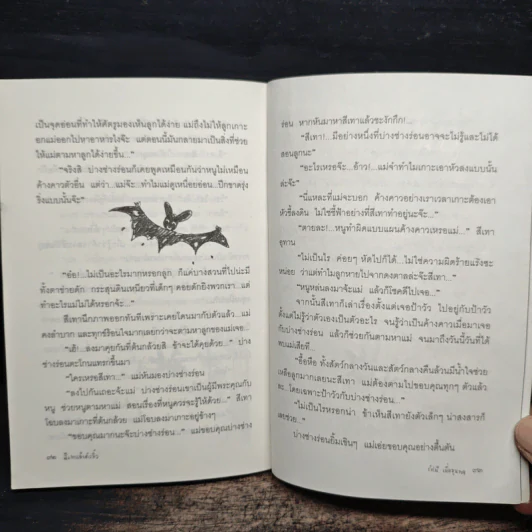 เป็นจุดอ่อนที่ทำให้ศัตรูมองเห็นลูกได้ง่าย แม่ถึงไม่ให้ลูกเกาะ
อกแม่ออกไปหาอาหารไงจ๊ะ แต่ตอนนี้มันกลายมาเป็นสิ่งที่ช่วย
ให้แม่ตามหาลูกได้ง่ายขึ้น..."
"จริงสิ ปางช่างร่อนก็เคยพูดเหมือนกันว่าหนูไม่เหมือน
ค้างคาวตัวอื่น แต่ว่า...แม่จ๊ะ...ทำไมแม่ดูเหนื่อยอ่อน..ปีกขาดรุ่ง
ริ่งแบบนั้นจ๊ะ"
"อ๋อ!...ไม่เป็นอะไรมากหรอกลูก ก็แค่บางสวนที่ไปน่ะมี
ทั้งตาข่ายดัก กระสุนดินเหนียวที่เด็กๆ คอยดักยิงพวกเรา...แต่
ทำอะไรแม่ไม่ได้หรอกจ้ะ..."
สีเทานึกภาพออกทันทีเพราะเคยโดนมากับตัวแล้ว...แม่
คงลำบาก และทุกข์ร้อนใจมากเลยกว่าจะตามหาลูกของแม่เจอ...
"เฮ้!...ลงมาคุยกันที่ต้นกล้วยสิ ข้าจะได้คุยด้วย..." ปาง
ช่างร่อนตะโกนแทรกขึ้นมา
"ใครเหรอสีเทา..." แม่หันมองปางช่างร่อน
"ลงไปกันเถอะจ้ะแม่ ปางช่างร่อนเขาเป็นผู้มีพระคุณกับ
หนู ช่วยหนูตามหาแม่ สอนเรื่องที่หนูควรจะรู้ให้ด้วย..." สีเทา
โฉบลงมาเกาะที่ต้นกล้วย แม่โฉบลงมาเกาะอยู่ข้างๆ
"ขอบคุณมากนะจ๊ะปางช่างร่อน..." แม่ขอบคุณปางช่าง
ร่อน หากหันมาหาสีเทาแล้วชะงักกึก!...
"สีเทา!...มีอย่างหนึ่งที่ปางช่างร่อนอาจจะไม่รู้และไม่ได้
สอนลูกนะ"
"อะไรเหรอจ๊ะ...อ้าว!...แม่จ๋าทำไมเกาะเอาหัวลงแบบนั้น
ล่ะจ๊ะ"
"นี่แหละที่แม่จะบอก ค้างคาวอย่างเราเวลาเกาะต้องเอา
หัวชี้ลงดิน ไม่ใช่ชี้ฟ้าอย่างที่สีเทาทำอยู่นะจ๊ะ..."
"ตายละ!...หนูทำผิดแบบแผนค้างคาวเหรอแม่..." สีเทา
อุทาน
"ไม่เป็นไร ค่อยๆ หัดไปก็ได้...ไม่ใช่ความผิดร้ายแรงซะ
หน่อย ว่าแต่ทำไมลูกหายไปจากดงตาลล่ะจ๊ะสีเทา..."
"หนูหล่นลงมาจ้ะแม่ แล้วก็โชคดีไปเจอ..."
จากนั้นสีเทาก็เล่าเรื่องตั้งแต่เจอป้าวัว ไปอยู่กับป้าวัว
ตั้งแต่ไม่รู้ว่าตัวเองเป็นตัวอะไร จนรู้ว่าเป็นค้างคาวเมื่อมาเจอ
กับปางช่างร่อน แล้วก็ช่วยกันตามหาแม่ จนมาถึงวันนี้วันที่ได้
พบแม่เสียที...
"อื้อหือ ทั้งสัตว์กลางวันและสัตว์กลางคืนล้วนมีน้ำใจช่วย
เหลือลูกมากเลยนะสีเทา แม่ต้องตามไปขอบคุณทุกๆ ตัวแล้ว
ละ...โดยเฉพาะป้าวัวกับปางช่างร่อน..."
"ไม่เป็นไรหรอกน่า ข้าเห็นสีเทายังตัวเล็กๆ น่าสงสารก็
เลยช่วย..."
ปางช่างร่อนยิ้มเขินๆ แม่เอ่ยขอบคุณอย่างตื้นตัน